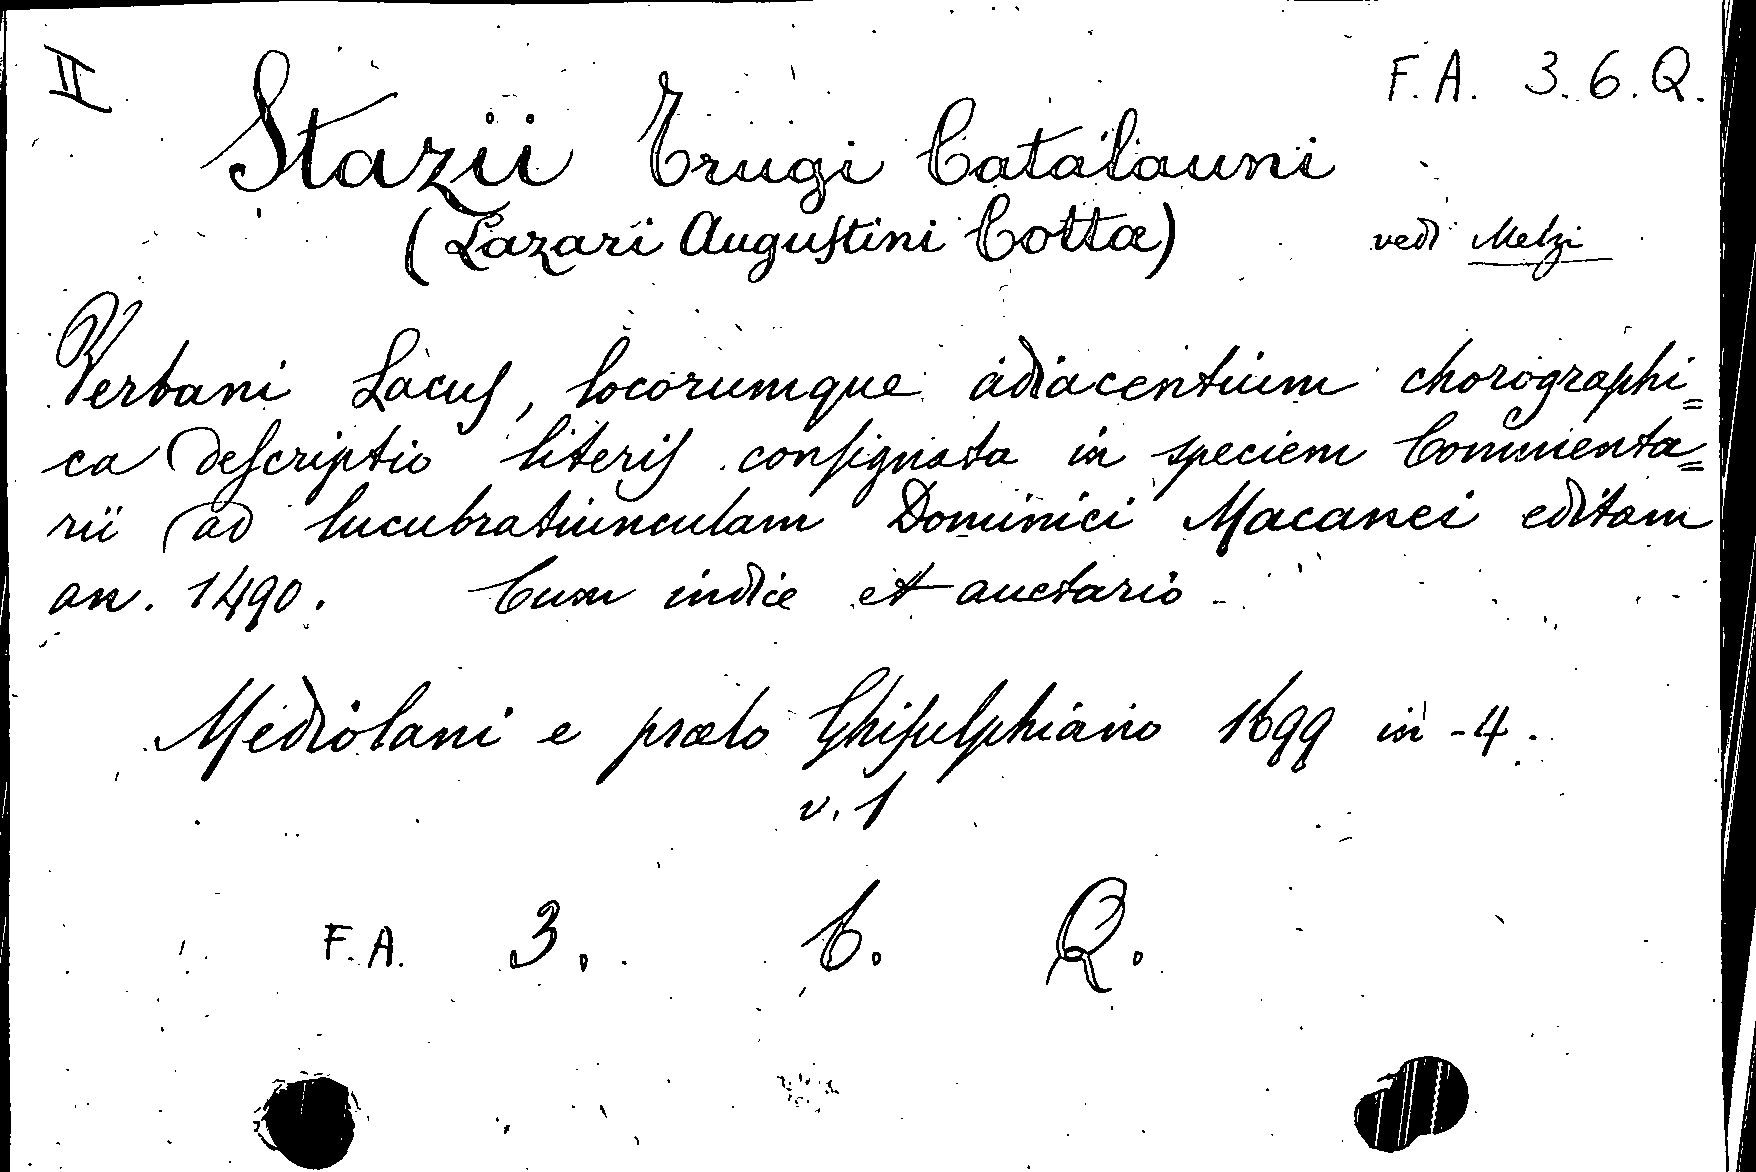 II
F.A. 3.6.Q.
Stazii Trugi Catalauni
(Lazari Augustini Cottæ) vedi Melzi
Verbani Lacus, locorumque adiacentium chorographi=
ca descriptio literis consignata in speciem Commenta=
rii ad lucubratiunculam Dominici Macanei editam
an. 1490. Cum indice et auctario -
Mediolani e prælo Ghisulphiano 1699 in -4.
v. 1
F.A. 3. 6. Q.